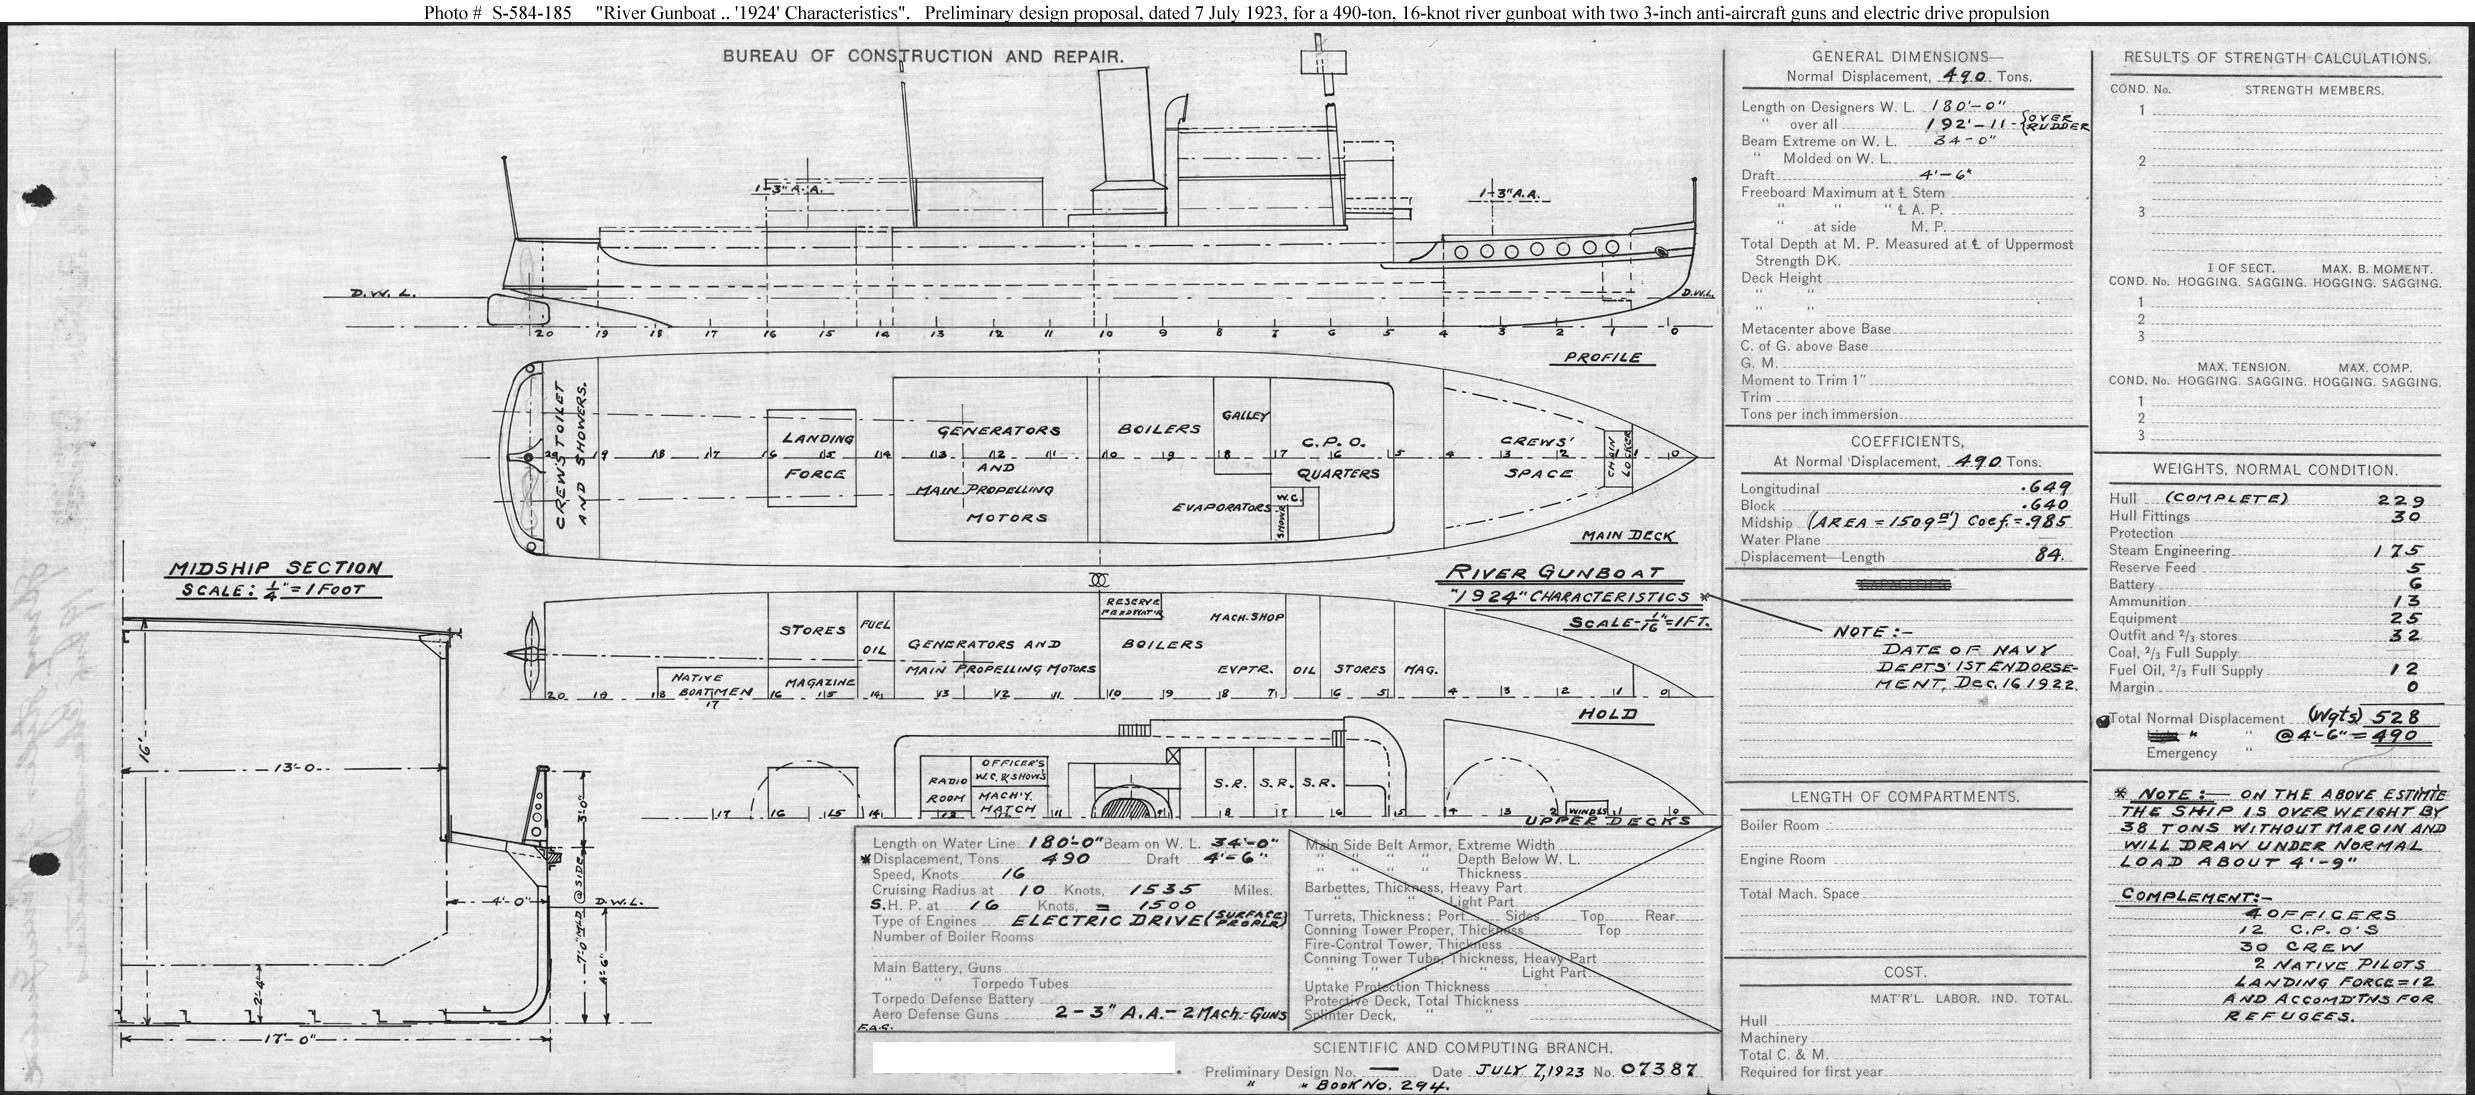 Photo # S-584-185 "River Gunboat .. '1924' Characteristics". Preliminary design proposal, dated 7 July 1923, for a 490-ton, 16-knot river gunboat with two 3-inch anti-aircraft guns and electric drive propulsion
BUREAU OF CONSTRUCTION AND REPAIR.
1-3" A.A.
1-3" A.A.
D.W.L.
D.W.L.
20 19 18 17 16 15 14 13 12 11 10 9 8 7 6 5 4 3 2 1 0
PROFILE
CREW'S TOILET
AND SHOWERS.
LANDING
FORCE
GENERATORS
AND
MAIN PROPELLING
MOTORS
BOILERS
GALLEY
EVAPORATORS
W.C.
SHOWR
C.P.O.
QUARTERS
CREWS'
SPACE
CHAIN
LOCKER
20 19 18 17 16 15 14 13 12 11 10 9 8 7 6 5 4 3 2 1 0
MAIN DECK
RIVER GUNBOAT
"1924" CHARACTERISTICS *
SCALE - 1/16" = 1 FT.
NATIVE
BOATMEN
STORES
MAGAZINE
FUEL
OIL
GENERATORS AND
MAIN PROPELLING MOTORS
RESERVE
FEEDWAT'R
BOILERS
MACH. SHOP
EVPTR.
OIL
STORES
MAG.
20 19 18 17 16 15 14 13 12 11 10 9 8 7 6 5 4 3 2 1 0
HOLD
RADIO
ROOM
OFFICER'S
W.C. & SHOW'S
MACH'Y.
HATCH
S.R. S.R. S.R.
WINDLS
17 16 15 14 12 11 9 8 7 6 5 4 3 2 1 0
UPPER DECKS
MIDSHIP SECTION
SCALE: 1/4" = 1 FOOT
16'-
13'-0
4'-0"
D.W.L.
3'-0"
7'-0" MLD @ SIDE
4'-6"
2'-4"
17'-0"
Length on Water Line 180'-0" Beam on W. L. 34'-0"
*Displacement, Tons 490 Draft 4'-6"
Speed, Knots 16
Cruising Radius at 10 Knots, 1535 Miles.
S.H.P. at 16 Knots, = 1500
Type of Engines ELECTRIC DRIVE (SURFACE PROPLR)
Number of Boiler Rooms
Main Battery, Guns
" " Torpedo Tubes
Torpedo Defense Battery
Aero Defense Guns 2-3" A.A.-2 MACH.-GUNS
E.A.C.
Main Side Belt Armor, Extreme Width
" " " " Depth Below W. L.
" " " " Thickness
Barbettes, Thickness, Heavy Part
" " Light Part
Turrets, Thickness: Port Sides Top Rear
Conning Tower Proper, Thickness Top
Fire-Control Tower, Thickness
Conning Tower Tube, Thickness, Heavy Part
" " " " Light Part
Uptake Protection Thickness
Protective Deck, Total Thickness
Splinter Deck, " "
SCIENTIFIC AND COMPUTING BRANCH.
Preliminary Design No. — Date JULY 7, 1923 No. 07387
" " BOOK NO. 294.
GENERAL DIMENSIONS—
Normal Displacement, 490 Tons.
Length on Designers W. L. 180'-0"
" over all 192'-11 - {OVER RUDDER
Beam Extreme on W. L. 34-0"
" Molded on W. L.
Draft 4'-6"
Freeboard Maximum at ℄ Stem
" " " ℄ A. P.
" at side M. P.
Total Depth at M. P. Measured at ℄ of Uppermost
Strength DK.
Deck Height
" "
" "
Metacenter above Base
C. of G. above Base
G. M.
Moment to Trim 1"
Trim
Tons per inch immersion
COEFFICIENTS,
At Normal Displacement, 490 Tons.
Longitudinal .649
Block .640
Midship (AREA = 150.9 □') Coef. = .985
Water Plane
Displacement—Length 84.
NOTE:-
DATE OF NAVY
DEPTS' 1ST ENDORSE-
MENT, Dec, 16 1922.
LENGTH OF COMPARTMENTS.
Boiler Room
Engine Room
Total Mach. Space
COST.
MAT'R'L. LABOR. IND. TOTAL.
Hull
Machinery
Total C. & M.
Required for first year
RESULTS OF STRENGTH CALCULATIONS.
COND. No. STRENGTH MEMBERS.
1
2
3
I OF SECT. MAX. B. MOMENT.
COND. No. HOGGING. SAGGING. HOGGING. SAGGING.
1
2
3
MAX. TENSION. MAX. COMP.
COND. No. HOGGING. SAGGING. HOGGING. SAGGING.
1
2
3
WEIGHTS, NORMAL CONDITION.
Hull (COMPLETE) 229
Hull Fittings 30
Protection
Steam Engineering 175
Reserve Feed 5
Battery 6
Ammunition 13
Equipment 25
Outfit and 2/3 stores 32
Coal, 2/3 Full Supply
Fuel Oil, 2/3 Full Supply 12
Margin 0
Total Normal Displacement (Wgts) 528
" " @ 4'-6" = 490
Emergency "
* NOTE:— ON THE ABOVE ESTIMTE
THE SHIP IS OVER WEIGHT BY
38 TONS WITHOUT MARGIN AND
WILL DRAW UNDER NORMAL
LOAD ABOUT 4'-9"
COMPLEMENT:-
4 OFFICERS
12 C.P.O'S
30 CREW
2 NATIVE PILOTS
LANDING FORCE = 12
AND ACCOMDTNS FOR
REFUGEES.